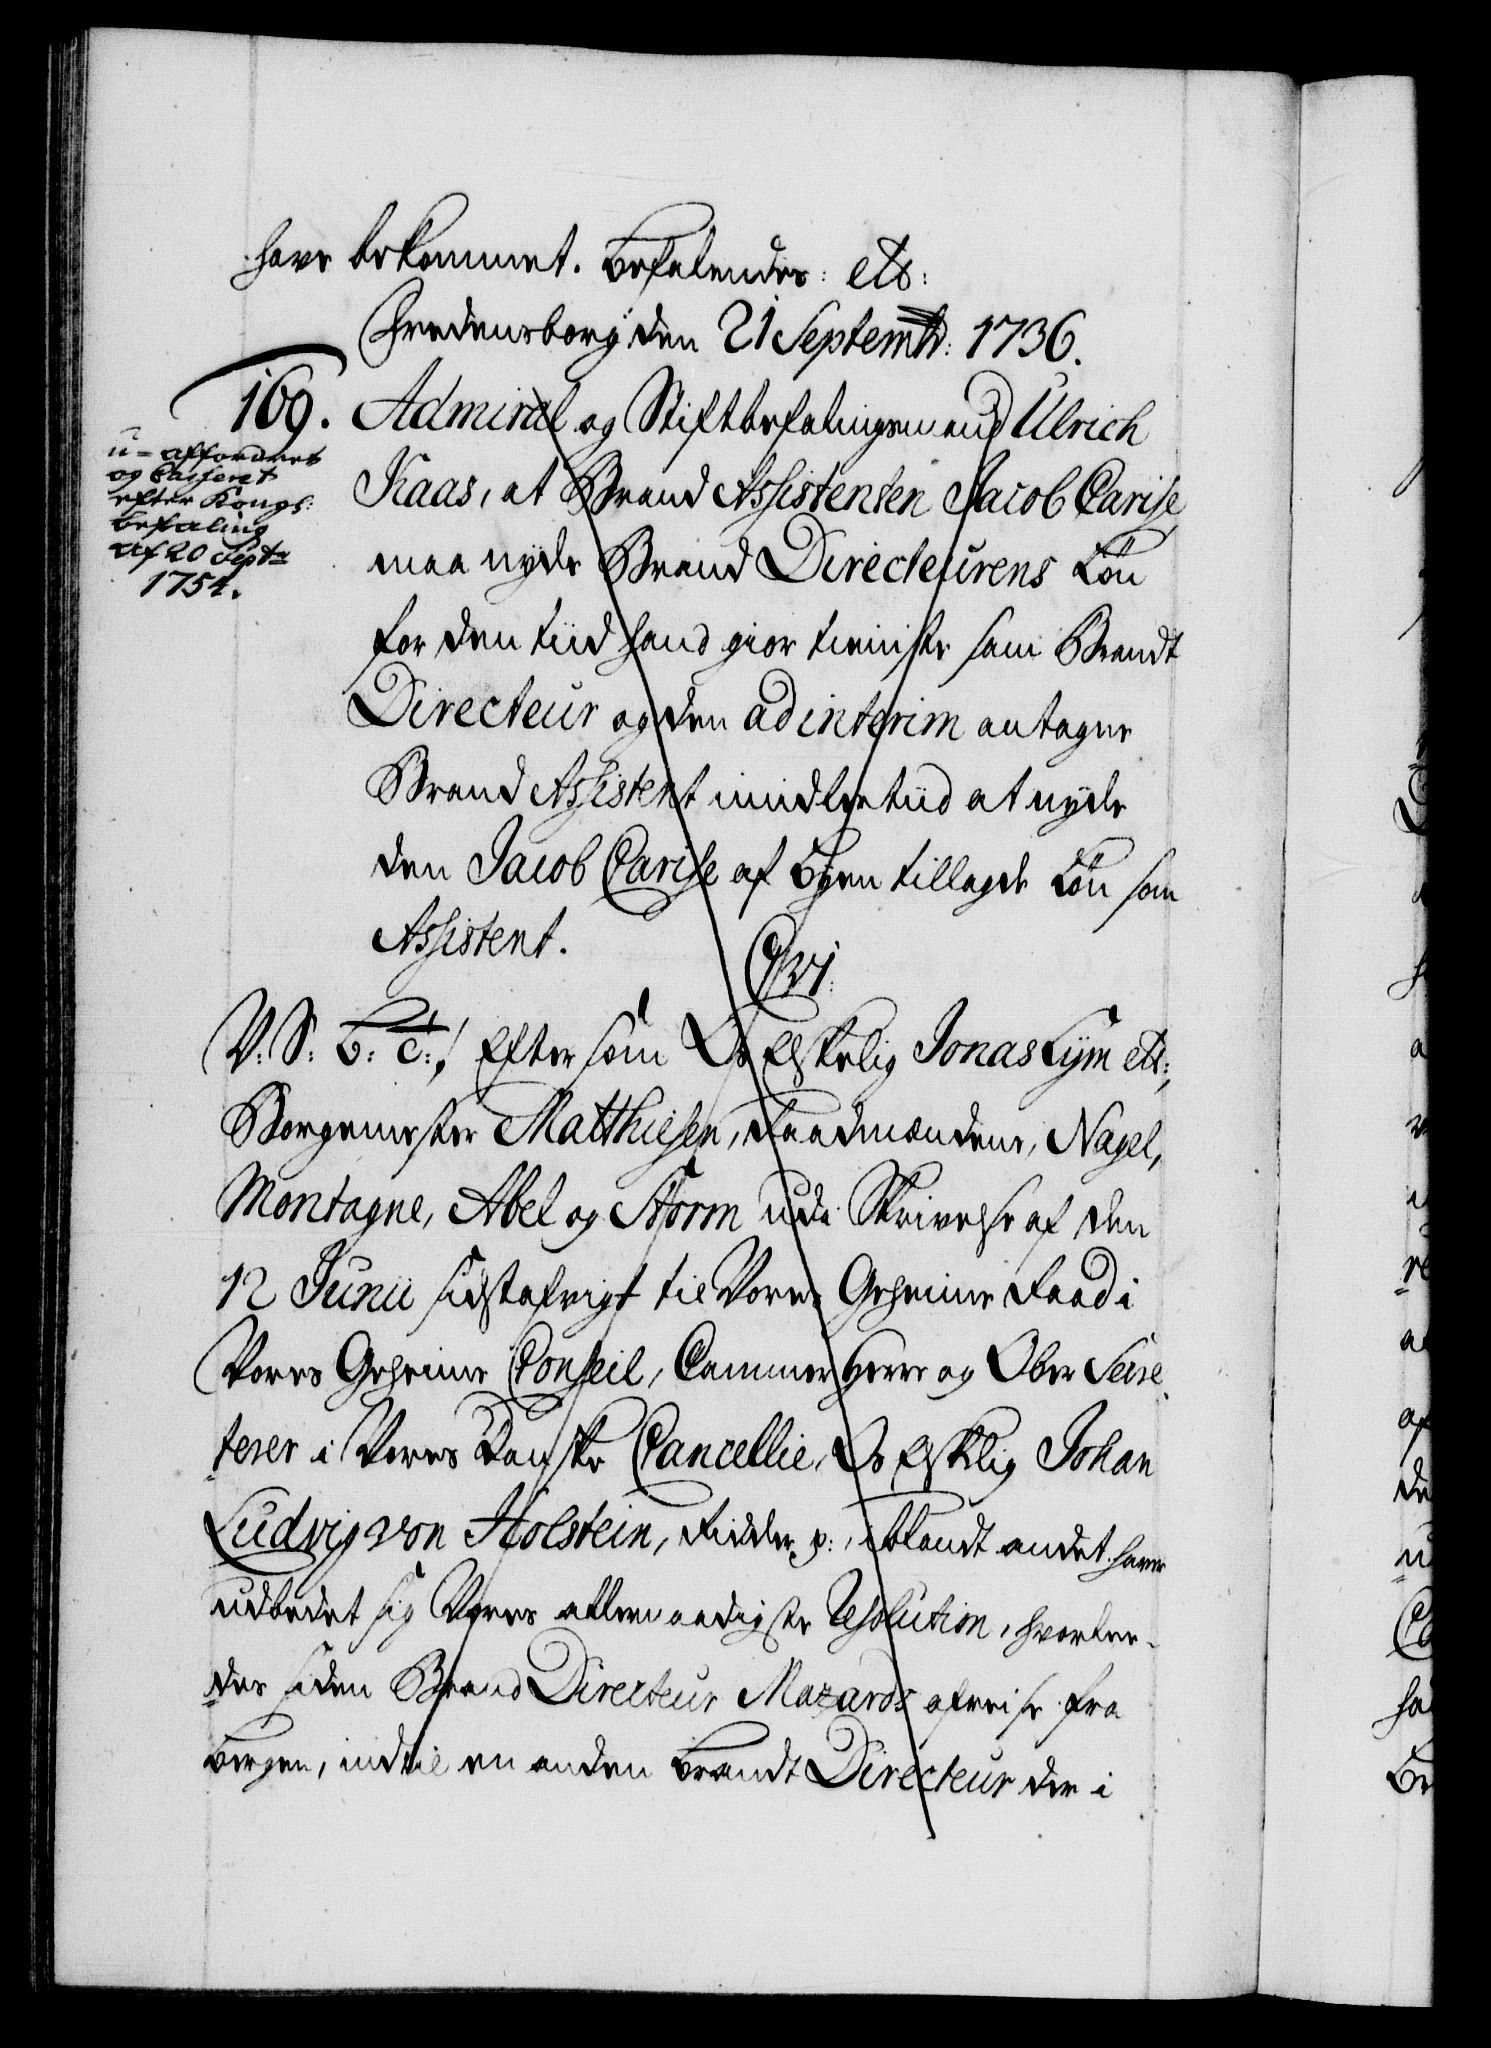 have bekommet. Befalendes: etc:
Fredensborg den 21 Septembr: 1736.
169. Admiral og Stiftbefalingsmand Ulrich
u-affordret
og Casseret
efter Kongl:
befaling
af 20 Septr
1754.
Kaas, at Brand Assistenten Jacob Carise
maa nyde Brand Directeurens Løn
for den tiid hand giør tieniste som Brandt
Directeur og den ad interim antagne
Brand Assistent imidlertiid at nyde
den Jacob Carise af Byen tillagde Løn som
Assistent.
C. VI.
V: S: B: C:, Eftersom Os Elskelig Jonas Lÿm etc:,
Borgemester Matthiesen, Raadmændene, Nagel,
Montagne, Abel og Storm udi Skrivelse af den
12 Junii sidstafvigt til Vores Geheime Raad i
Vores Geheime Conseil, Cammer Herre og Ober Secre
terer i Vores Danske Cancellie, Os Elskelig Johan
Ludvig von Holstein, Ridder p:, iblandt andet haver
udbedet sig Vores allernaadigste Resolution, hvorle-
des siden Brand Directeur Mazards afreise fra
Bergen, indtil en anden Brandt Directeur der i